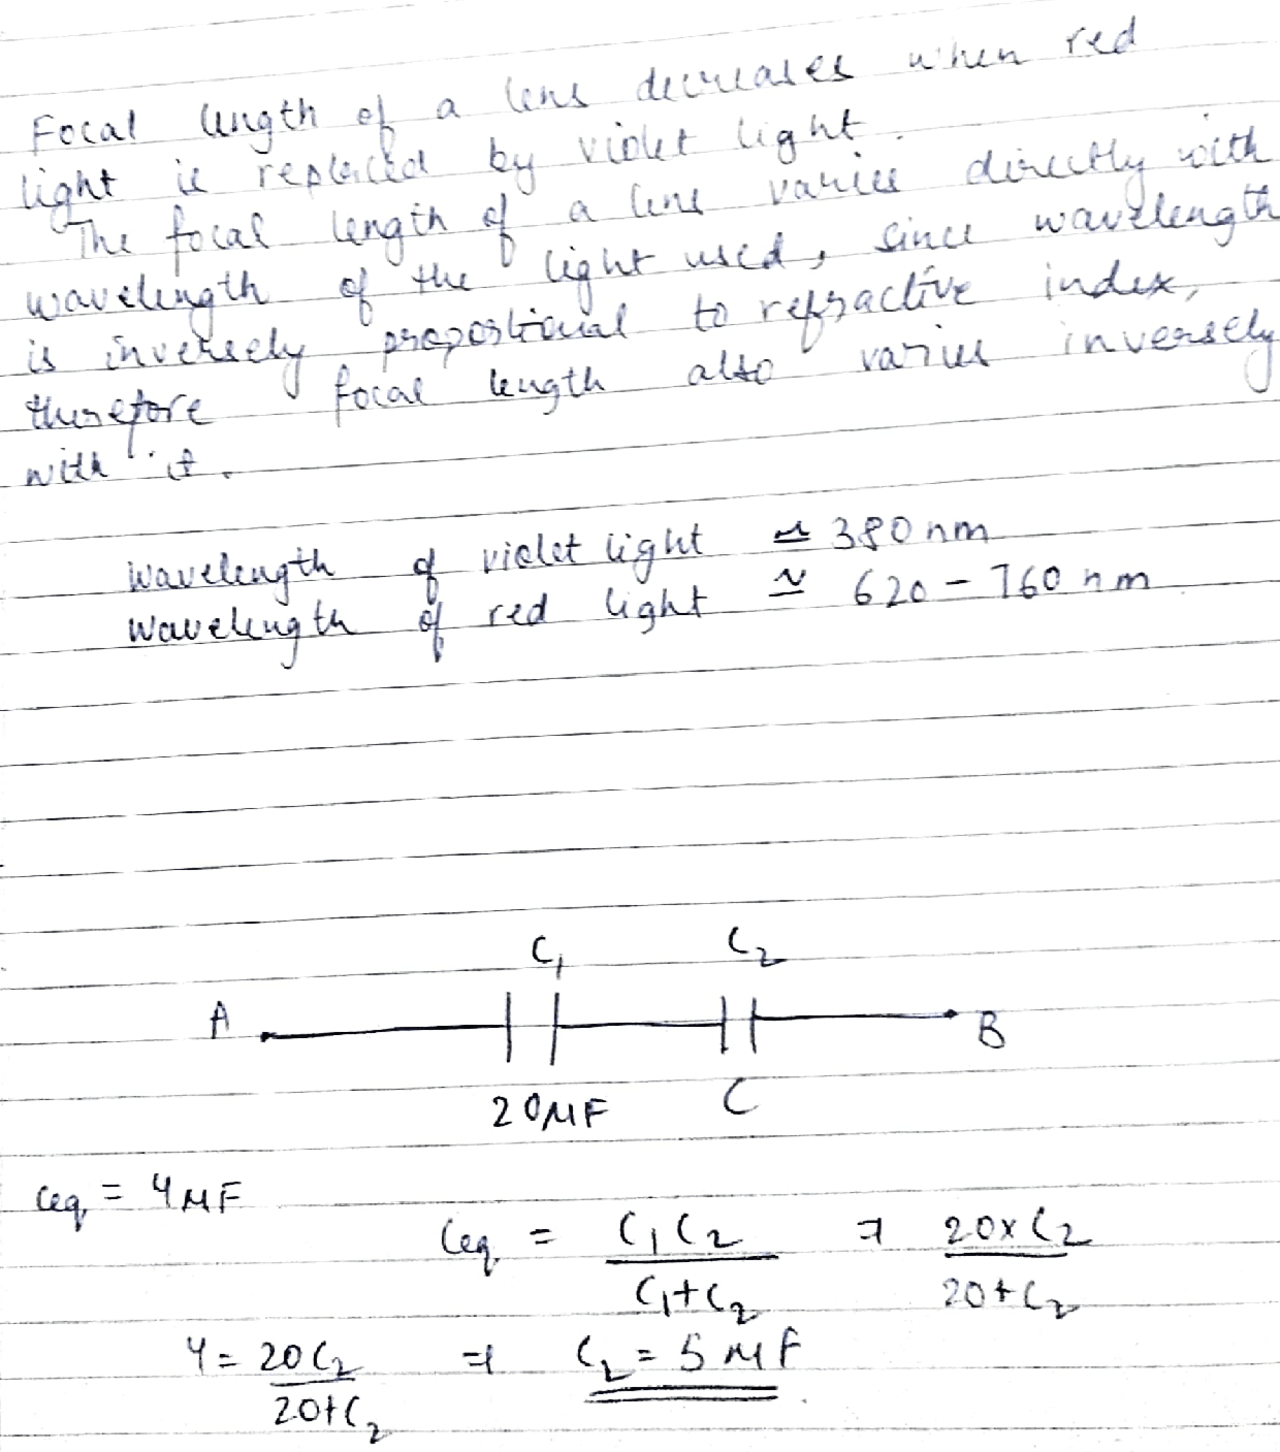 Focal length of a lens decreases when red
light is replaced by violet light.
The focal length of a lens varies directly with
wavelength of the light used, since wavelength
is inversely proportional to refractive index,
therefore focal length also varies inversely
with it.
Wavelength of violet light ≃ 380 nm
Wavelength of red light ≃ 620 - 760 nm
C₁ C₂
A B
20μF C
Ceq = 4μF
Ceq = C₁C₂ / C₁+C₂ ⇒ 20×C₂ / 20+C₂
4 = 20C₂ / 20+C₂ ⇒ C₂ = 5μF